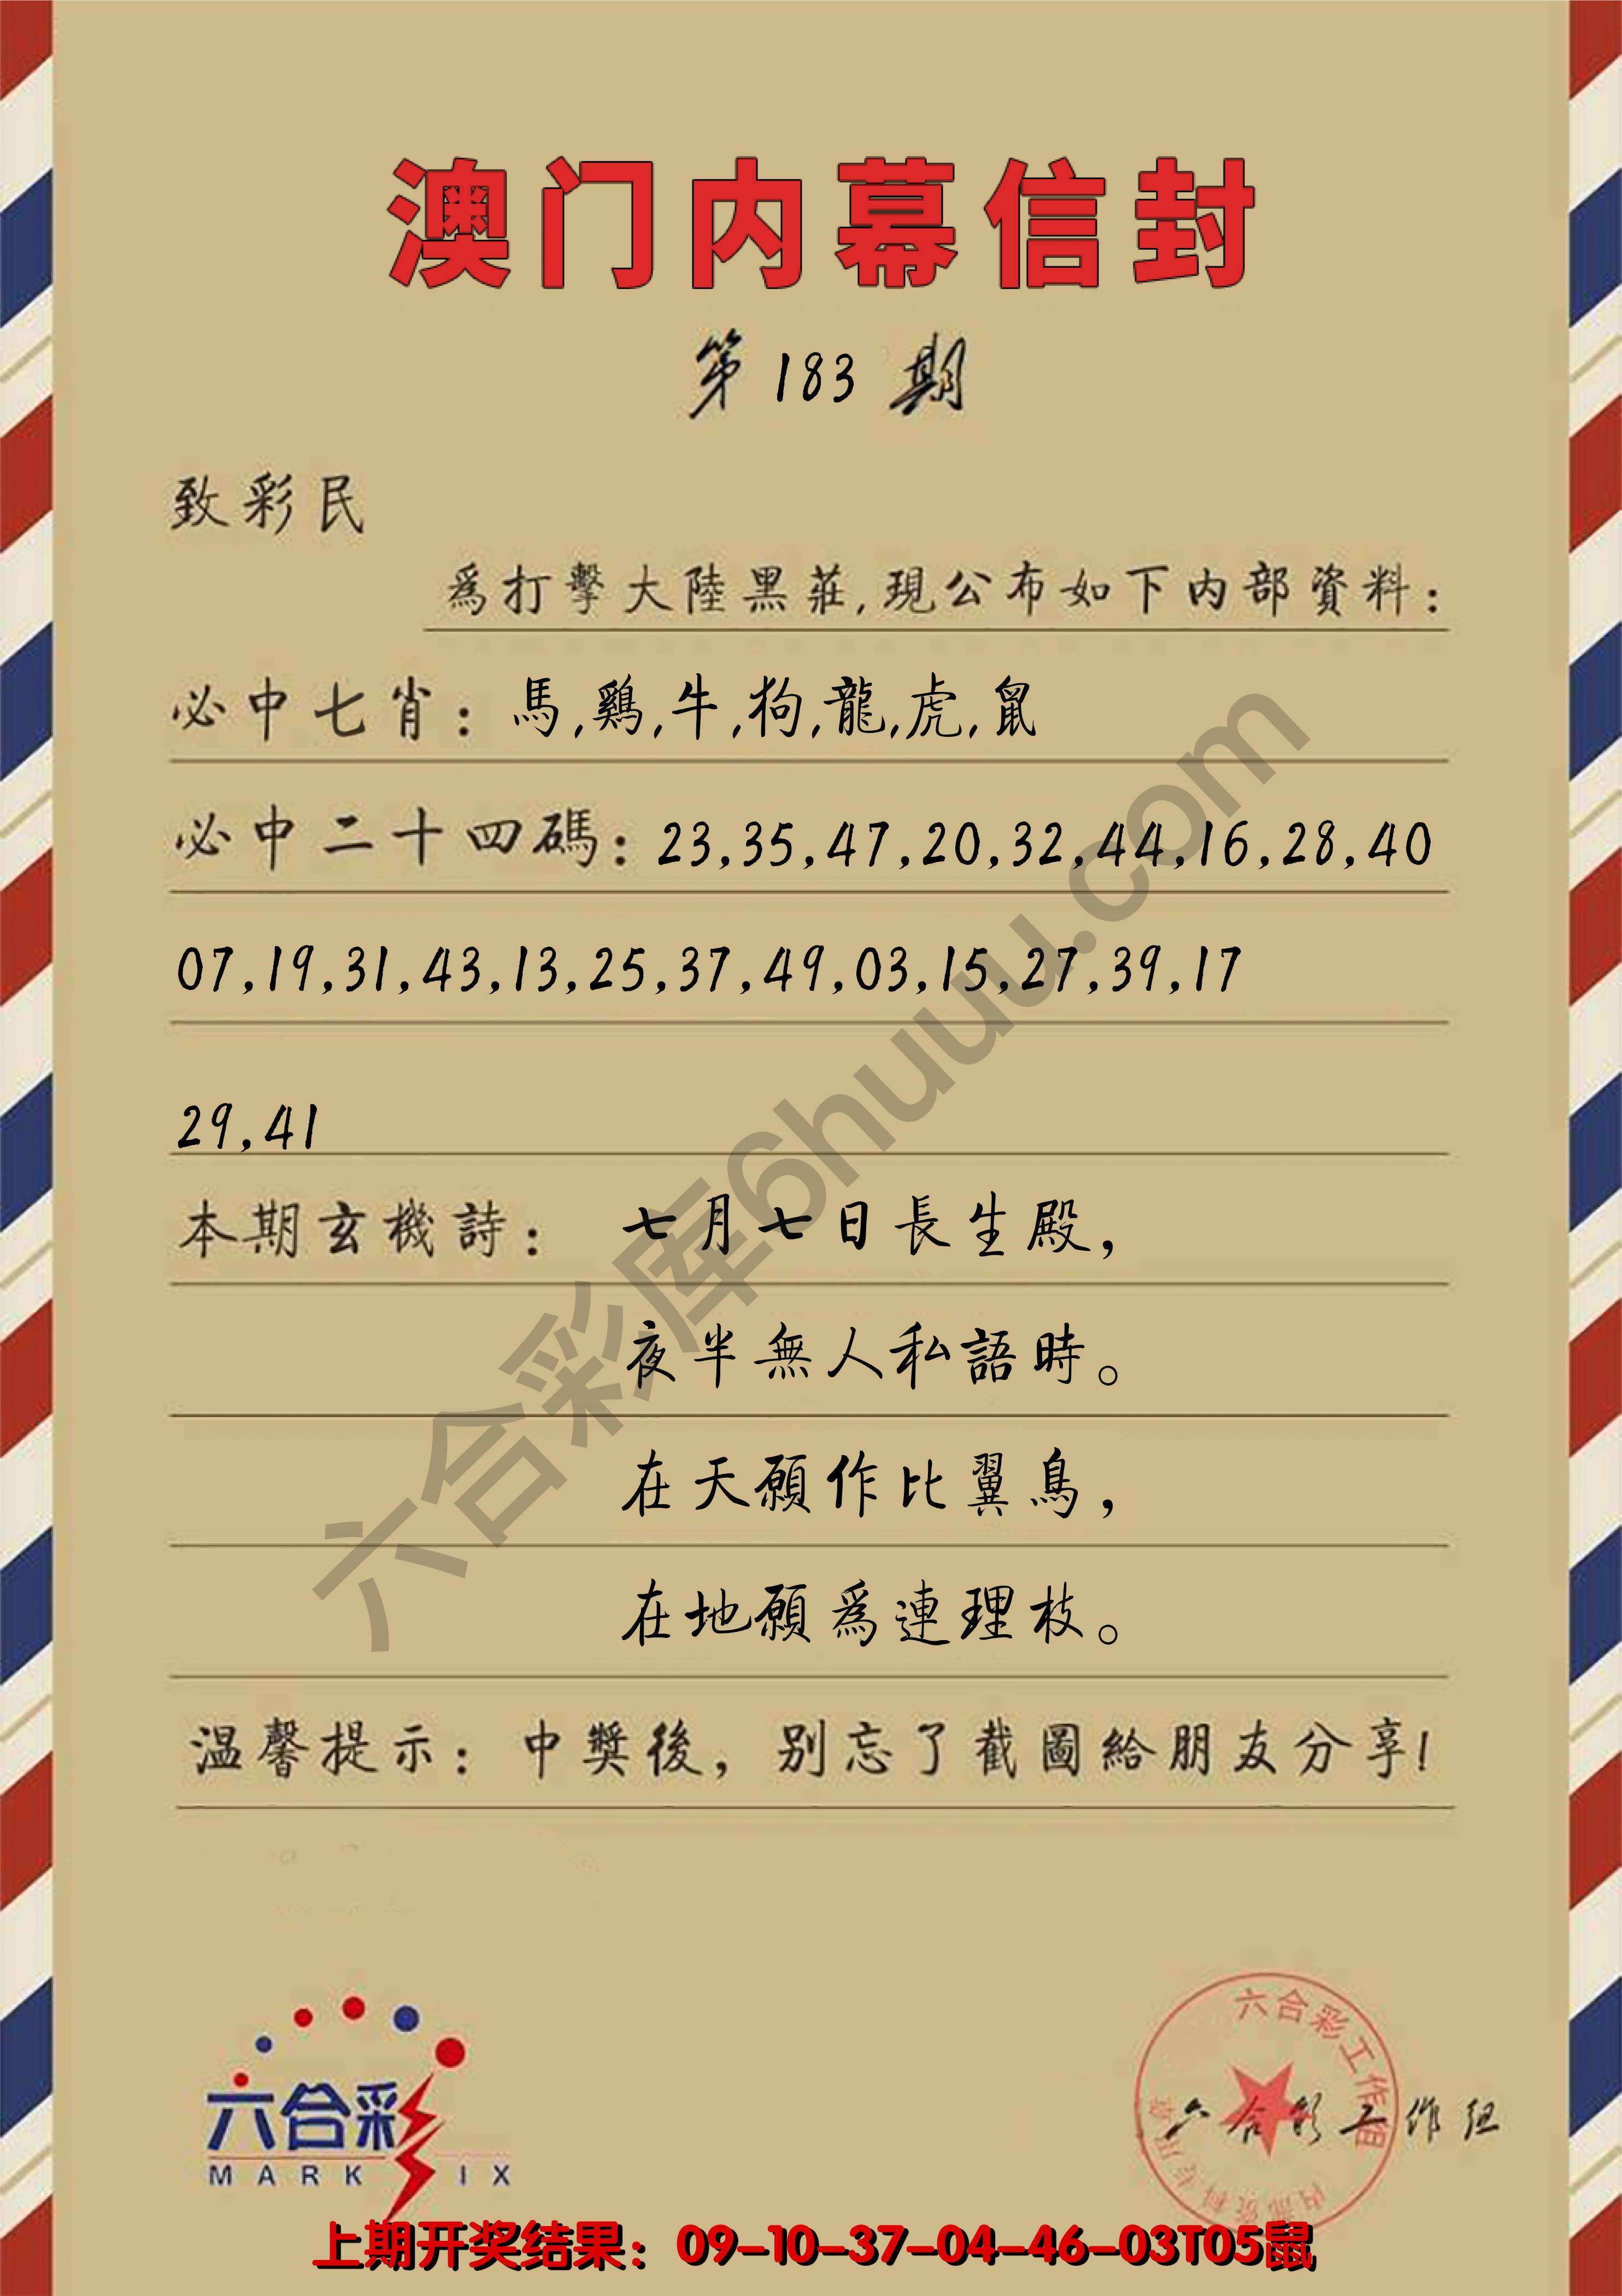 澳门内幕信封
第 183 期
致彩民
爲打擊大陸黑莊,現公布如下内部資料:
必中七肖: 馬,鷄,牛,狗,龍,虎,鼠
必中二十四碼: 23,35,47,20,32,44,16,28,40
07,19,31,43,13,25,37,49,03,15,27,39,17
29,41
本期玄機詩: 七月七日長生殿,
夜半無人私語時。
在天願作比翼鳥,
在地願爲連理枝。
温馨提示: 中獎後, 别忘了截圖給朋友分享!
六合彩库6huuu.com
六合彩
MARK SIX
六合彩工作组
内部资料专用章
六合彩工作组
上期开奖结果: 09-10-37-04-46-03T05鼠